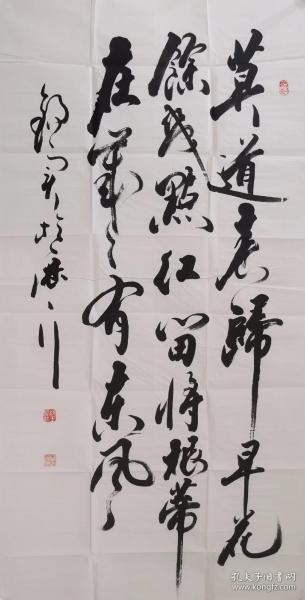 莫道春歸早花
餘幾點红留將根蒂
在歲々有東風
孔夫子旧书网